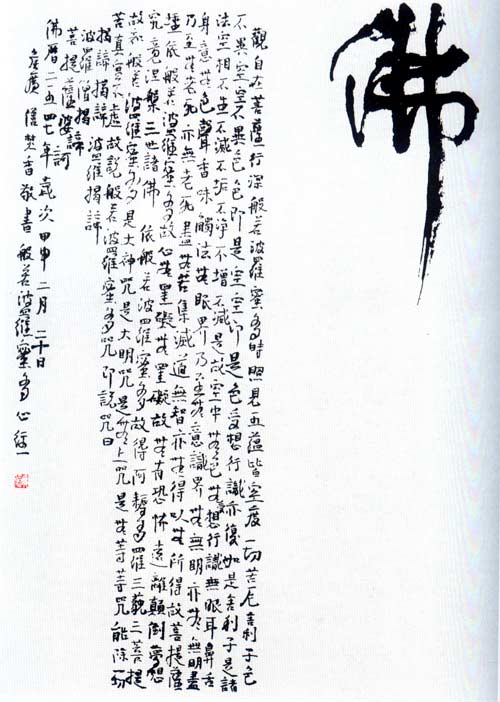 佛
觀自在菩薩行深般若波羅蜜多時照見五蘊皆空度一切苦厄舍利子色
不異空空不異色色即是空空即是色受想行識亦復如是舍利子是諸
法空相不生不滅不垢不淨不增不減是故空中無色無受想行識無眼耳鼻舌
身意無色聲香味觸法無眼界乃至無意識界無無明亦無無明盡
乃至無老死亦無老死盡無苦集滅道無智亦無得以無所得故菩提薩
埵依般若波羅蜜多故心無罣礙無罣礙故無有恐怖遠離顛倒夢想
究竟涅槃三世諸佛依般若波羅蜜多故得阿耨多羅三藐三菩提
故知般若波羅蜜多是大神咒是大明咒是無上咒是無等等咒能除一切
苦真實不虛故說般若波羅蜜多咒即說咒曰
揭諦揭諦波羅揭諦
波羅僧揭諦
菩提薩婆訶
佛曆二五四七年歲次甲申二月二十日
焚香敬書般若波羅蜜多心經一